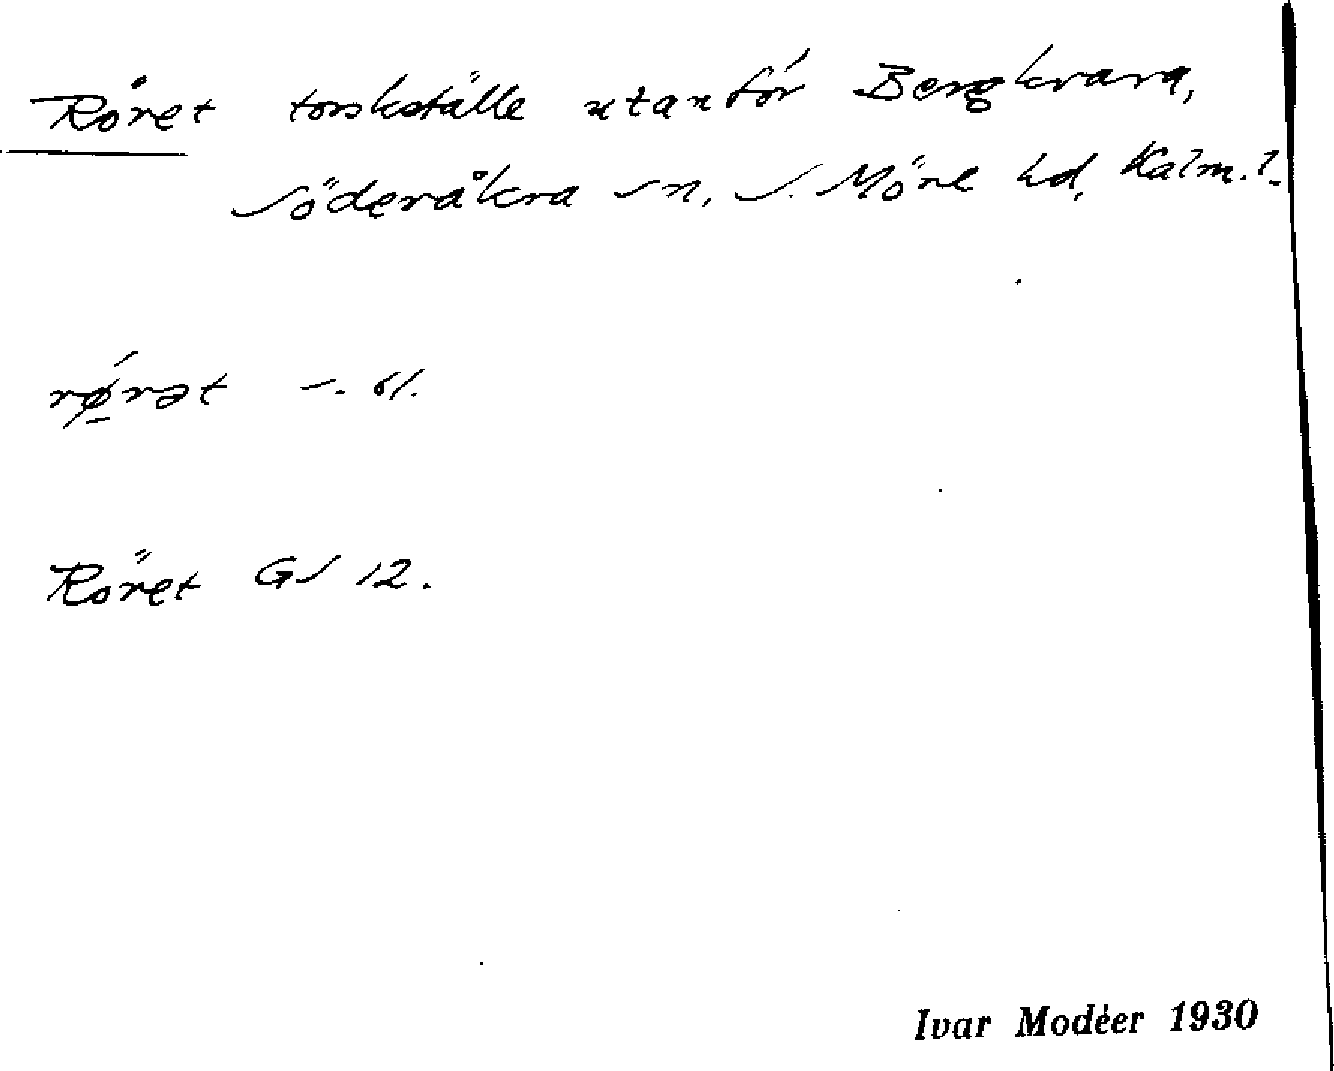 Röret torskställe utanför Bergkvara,
Söderåkra sn, S. Möre hd, Kalm. l.
rǿ̱rət s. 61.
Röret GS 12.
Ivar Modéer 1930